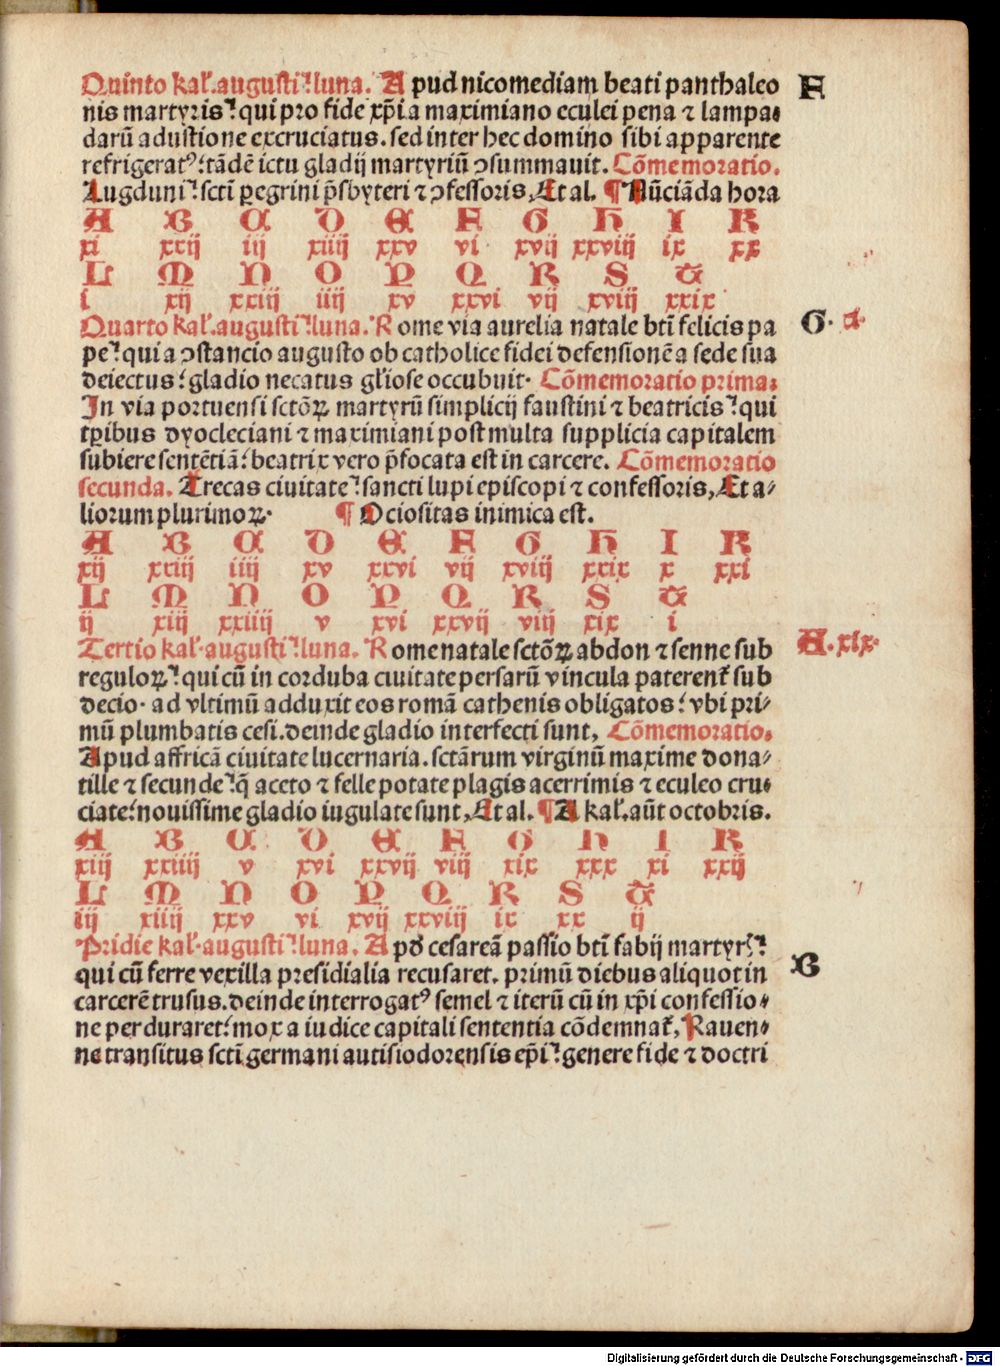 Quinto kal̛.augusti.luna. A pud nicomediam beati panthaleo F
nis martyris: qui pro fide xp̄i a maximiano eculei pena ⁊ lampa-
darū adustione excruciatus. sed inter hec domino sibi apparente
refrigeratꝰ: tādē ictu gladij martyriū ↄsummauit. Cōmemoratio.
Lugduni: scti ꝑegrini p̄sbyteri ⁊ ↄfessoris, Et al. ¶ Nūciāda hora
A B C D E F G H I K
xi xxij iij xiiij xxv vi xvij xxviij ix xx
L M N O P Q R S T
i xij xxiij iiij xv xxvi vij xviij xxix
Quarto kal̛.augusti:luna. R ome via aurelia natale bti felicis pa G. a.
pe: qui a ↄstancio augusto ob catholice fidei defensionē a sede sua
deiectus: gladio necatus gl̛iose occubuit. Cōmemoratio prima.
In via portuensi sctōꝝ martyrū simplicij faustini ⁊ beatricis: qui
tꝑibus dyocleciani ⁊ maximiani post multa supplicia capitalem
subiere sentētiā: beatrix vero p̄focata est in carcere. Cōmemoratio
secunda. Trecas ciuitate: sancti lupi episcopi ⁊ confessoris, Et a-
liorum plurimoꝝ. ¶ Ociositas inimica est.
A B C D E F G H I K
xij xxiij iiij xv xxvi vij xviij xxix x xxi
L M N O P Q R S T
ij xiij xxiiij v xvi xxvij viij xix i
Tertio kal̛.augusti:luna. R ome natale sctōꝝ abdon ⁊ senne sub A. xix.
reguloꝝ: qui cū in corduba ciuitate persarū vincula paterent̛ sub
decio. ad vltimū adduxit eos romā cathenis obligatos: vbi pri-
mū plumbatis cesi. deinde gladio interfecti sunt, Cōmemoratio.
Apud affricā ciuitate lucernaria. sctārum virginū maxime dona-
tille ⁊ secunde: q̄ aceto ⁊ felle potate plagis acerrimis ⁊ eculeo cru-
ciate: nouissime gladio iugulate sunt, Et al. ¶ A kal̛.aūt octobris.
A B C D E F G H I K
xiij xxiiij v xvi xxvij viij xix xxx xi xxij
L M N O P Q R S T
iij xiiij xxv vi xvij xxviij ix xx ij
Pridie kal̛.augusti:luna. A pđ cesareā passio bti fabij martyr̛:
qui cū ferre vexilla presidialia recusaret. primū diebus aliquot in B
carcerē trusus. deinde interrogatꝰ semel ⁊ iterū cū in xp̄i confessio-
ne perduraret: mox a iudice capitali sententia cōdemnat̛, Rauen-
ne transitus scti germani autisiodorensis ep̄i: genere fide ⁊ doctri
Digitalisierung gefördert durch die Deutsche Forschungsgemeinschaft - DFG